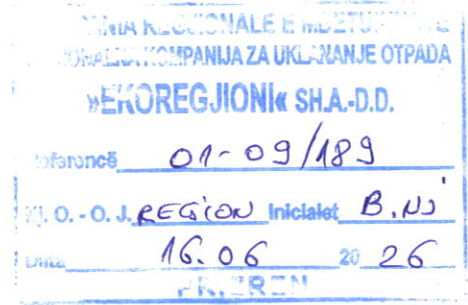 REGJIONALE E
KOMPANIJA ZA UKLANANJE OTPADA
»EKOREGJIONI« SH.A.-D.D.
Referencë 01-09/189
O. - O. J. REGION Inicialet B.NJ
Data 16.06 20 26
PRIZREN